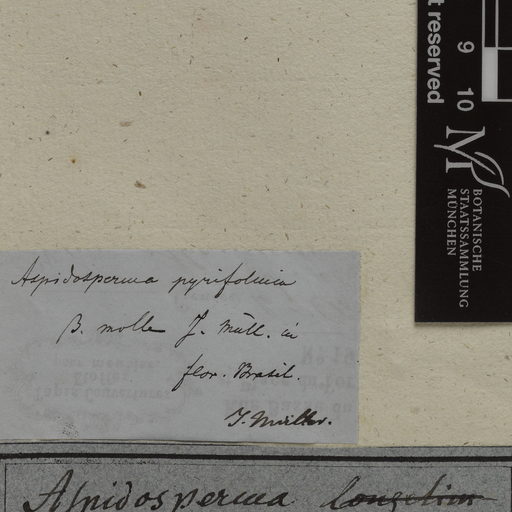 t reserved
9 10
M
BOTANISCHE
STAATSSAMMLUNG
MÜNCHEN
Aspidosperma pyrifolium
β. molle J. Müll. in
flor. Brasil.
J. Müller.
Aspidosperma